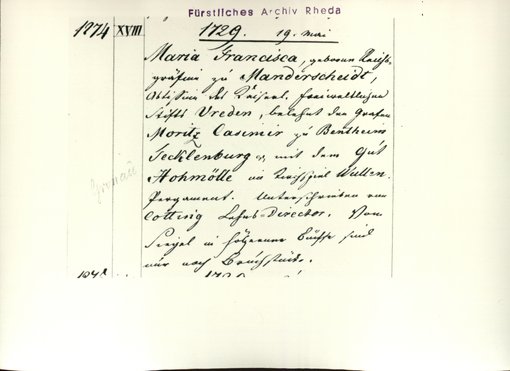 Fürstliches Archiv Rheda
1274 XVIII 1729. 19. Mai
Maria Francisca, geborene Reichs-
gräfinn zu Manderscheidt,
Abtissinn des Kaiserl. freiweltlichen
Stifts Vreden, belehnt den Grafen
Moritz Casimir zu Bentheim
Tecklenburg mit dem Gut
Hohmölle im Kirchspiel Wüllen.
Pergament. Unterschrieben von
Cotting Lehns-Director. Vom
Siegel in hölzerner Büchse sind
nur noch Bruchstücke.